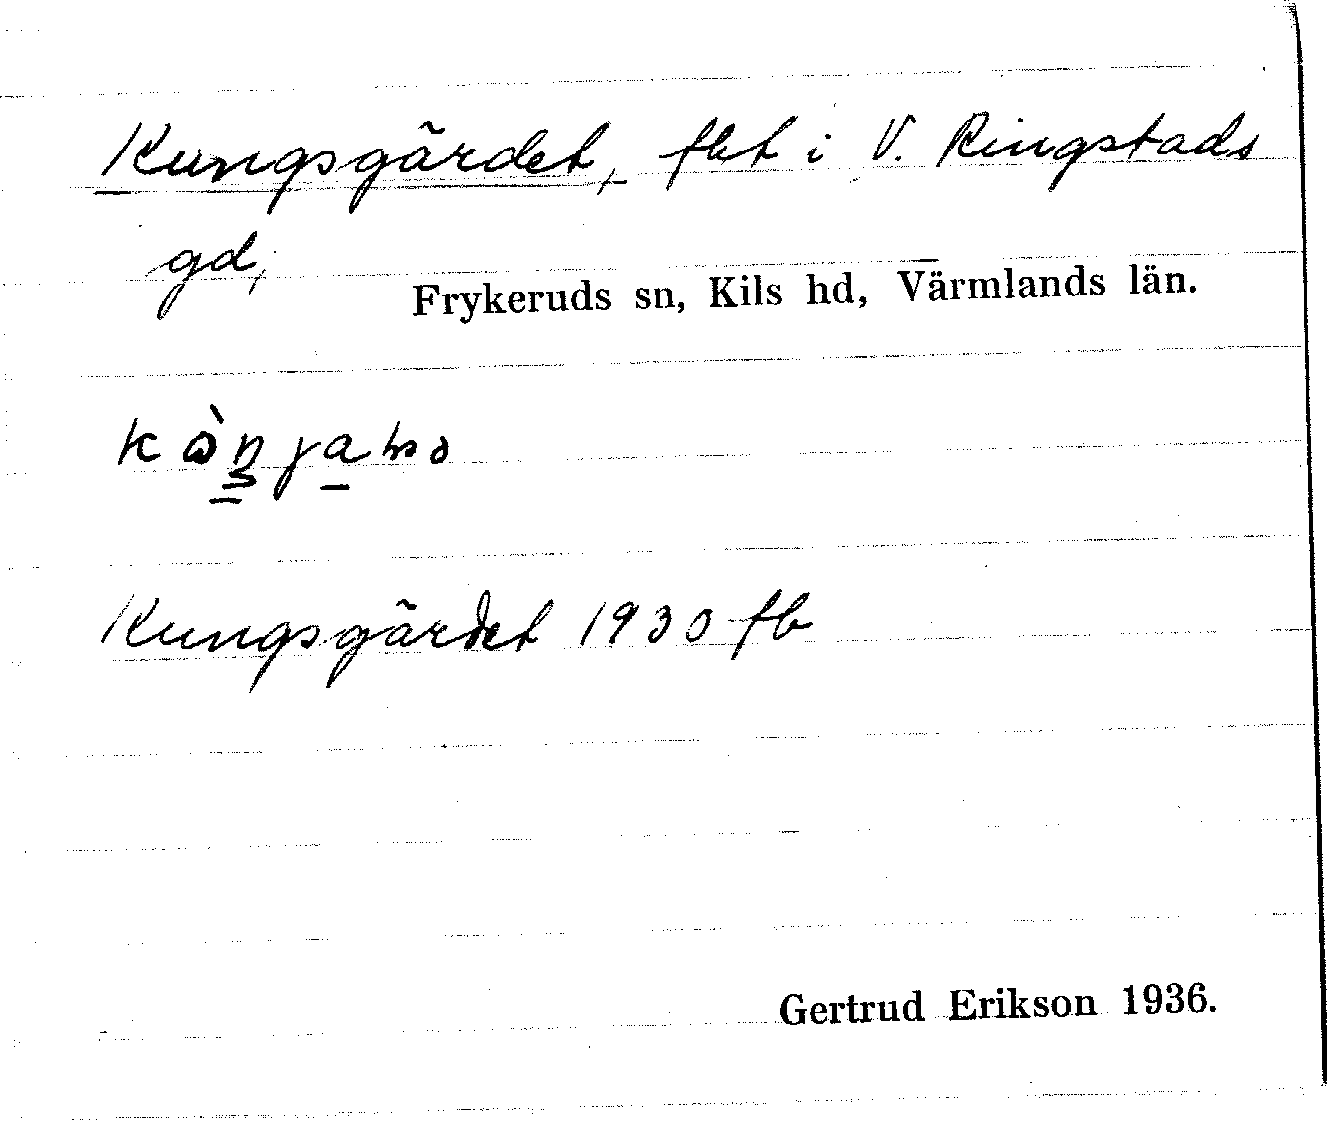 Kungsgärdet, fbt i V. Ringstads
gd,
Frykeruds sn, Kils hd, Värmlands län.
Kungsgärdet 1930 fb
Gertrud Erikson 1936.